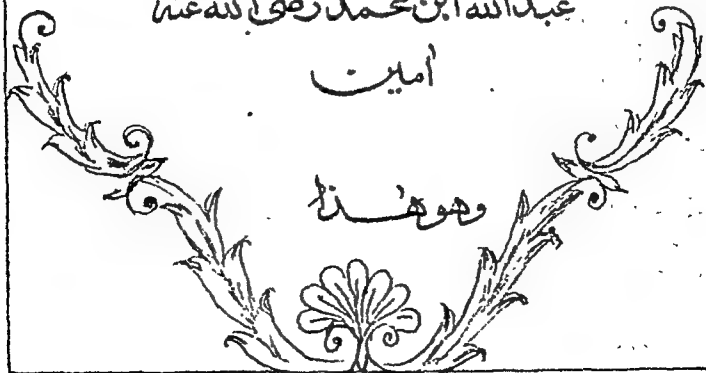 عبدالله ابن محمد رضي الله عنه
أمين
وهو هذا